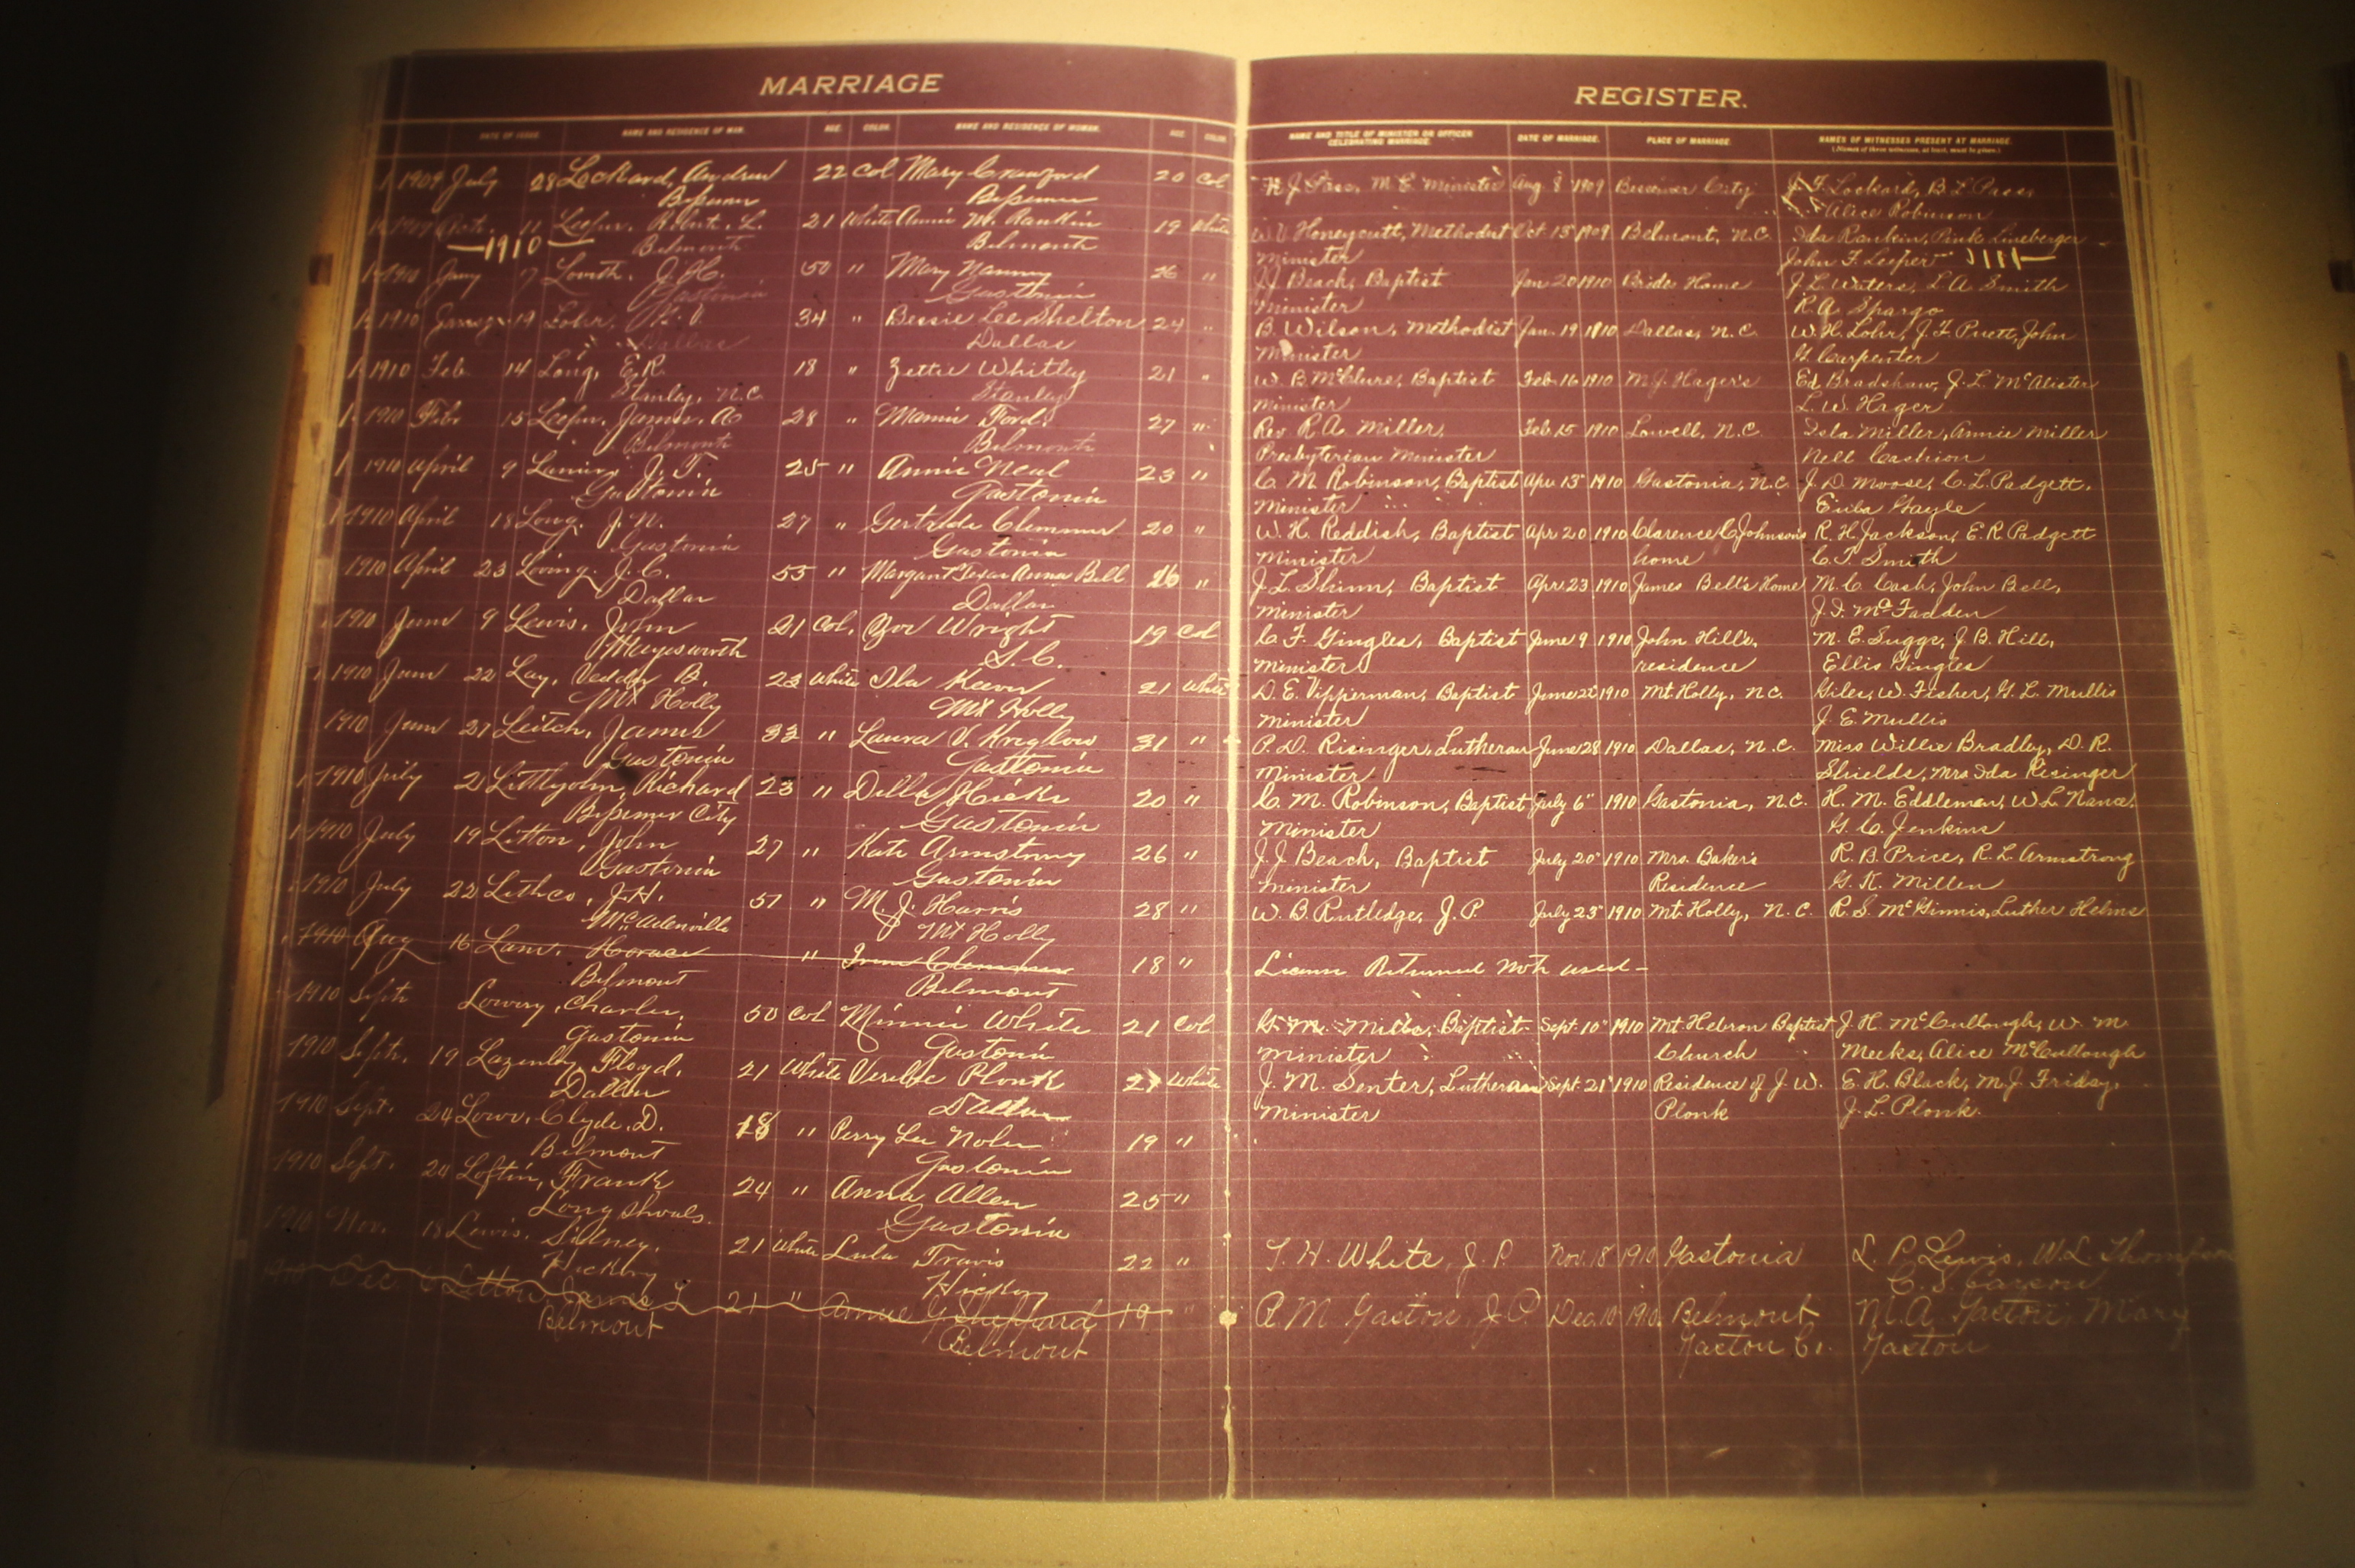 MARRIAGE
REGISTER.
DATE OF ISSUE. NAME AND RESIDENCE OF MAN. AGE. COLOR. NAME AND RESIDENCE OF WOMAN. AGE. COLOR.
NAME AND TITLE OF MINISTER OR OFFICER CELEBRATING MARRIAGE. DATE OF MARRIAGE. PLACE OF MARRIAGE. NAMES OF WITNESSES PRESENT AT MARRIAGE.
(Names of three witnesses, at least, must be given.)
1909 July 28 Lockard, Andrew 22 Col Mary Crawford 20 Col M. E. Minister Aug. 8 1909 Bessemer City J. F. Lockard, B. L. Pass,
Bessemer Bessemer Alice Robinson
1909 Oct. 11 Leeper, Robert. L. 21 White Annie M. Rankin 19 White Honeycutt, Methodist Oct 13 1909 Belmont, N.C. Ida Rankin, Pink Lineberger
—1910— Belmont Belmont Minister John F. Leeper
1910 Jany 7 J. H. 50 " Mary Nanney 26 " J J Beach, Baptist Jan 20 1910 Brides Home J. L. Waters, L. A. Smith
Gastonia Gastonia Minister R. A. Spargo
1910 Jany 19 Lohr, 34 " Bessie Lee Shelton 24 " B. Wilson, Methodist Jan. 19 1910 Dallas, N.C. W. H. Lohr, J. F. Puett, John
Dallas Dallas Minister G. Carpenter
1910 Feb 14 Long, E.R. 18 " Zettie Whitley 21 " W. B. McClure, Baptist Feb 16 1910 M. J. Hager's Ed Bradshaw, J. L. McAlister
Stanley, N.C. Stanley Minister L. W. Hager
1910 Febr 15 Leeper, James. A 28 " Mamie Ford. 27 " Rev R. A. Miller, Feb 15 1910 Lowell, N.C. Isla Miller, Annie Miller
Belmont Belmont Presbyterian Minister Nell Cashion
1910 April 9 J. T. 25 " Annie Neal 23 " C. M Robinson, Baptist Apr 13 1910 Gastonia, N.C. J. D. Moose, C. L. Padgett,
Gastonia Gastonia Minister Gayle
1910 April 18 Long. J. N. 27 " Gertrude Clemmer 20 " W. H. Reddish, Baptist Apr 20 1910 Clarence C Johnson's R. H. Jackson, E. R. Padgett
Gastonia Gastonia Minister home C. T. Smith
1910 April 23 Loving. J. C. 55 " Margaret Texas Anna Bell 26 " J. L. Shinn, Baptist Apr. 23 1910 James Bell's Home M. C. Cash, John Bell,
Dallas Dallas Minister J. F. McFadden
1910 June 9 Lewis, John 21 Col. Zoe Wright 19 Col C. F. Gingles, Baptist June 9 1910 John Hill's, M. E. Suggs, J. B. Hill,
Mayesworth S. C. Minister residence Ellis Gingles
1910 June 22 Lay, Vedder B. 23 White Ila Keever 21 White D. E. Vipperman, Baptist June 22 1910 Mt. Holly, N.C. Giles, W. Fisher, G. L. Mullis
Mt Holly Mt Holly Minister J. E. Mullis
1910 June 27 Leitch, James 33 " Laura V. Kreglow 31 " P. D. Risinger, Lutheran June 28 1910 Dallas, N.C. Miss Willie Bradley, D. R.
Gastonia Gastonia Minister Shields, Mrs Ida Risinger
1910 July 2 Littlejohn, Richard 23 " Della Hicks 20 " C. M. Robinson, Baptist July 6" 1910 Gastonia, N.C. H. M. Eddleman, W. L. Nance,
Bessemer City Gastonia Minister G. C. Jenkins
1910 July 19 Litton, John 27 " Kate Armstrong 26 " J. J. Beach, Baptist July 20" 1910 Mrs. Baker's R. B. Price, R. L. Armstrong
Gastonia Gastonia Minister Residence G. K. Millen
1910 July 22 Lithco, J. H. 57 " M. J. Harris 28 " W. B. Rutledge, J. P. July 23" 1910 Mt Holly, N.C. R. S. McGinnis, Luther Helms
McAdenville Mt Holly
1910 Aug 16 Lane. Horace " Clemmer 18 " License Returned Not used —
Belmont Belmont
1910 Sept Lowery, Charles, 50 Col Minnie White 21 Col Baptist Sept. 10" 1910 Mt. Hebron Baptist J. H. McCullough, W. M.
Gastonia Gastonia Minister Church Meeks, Alice McCullough
1910 Sept. 19 Lazenby, Floyd. 21 White Plonk 27 White J. M. Senter, Lutheran Sept. 21" 1910 Residence of J. W. E. H. Black, M. J. Friday,
Dallas Dallas Minister Plonk J. L. Plonk.
1910 Sept. 24 Lowe, Clyde. D. 18 " Perry Lee Nolen 19 "
Belmont Gastonia
1910 Sept. 24 Loftin, Frank 24 " Anna Allen 25 "
Long Shoals. Gastonia
1910 Nov. 18 Lewis. Sidney. 21 White Lula Travis 22 " T. H. White, J. P. Nov. 18 1910 Gastonia L. P. Lewis, W. L. Thompson
Hickory Hickory C. S. Carson
1910 Dec Litton James L 21 " Annie G Sheppard 19 " A M Gaston, J. P. Dec. 10 1910 Belmont M. A. Gaston, Mary
Belmont Belmont Gaston Co. Gaston